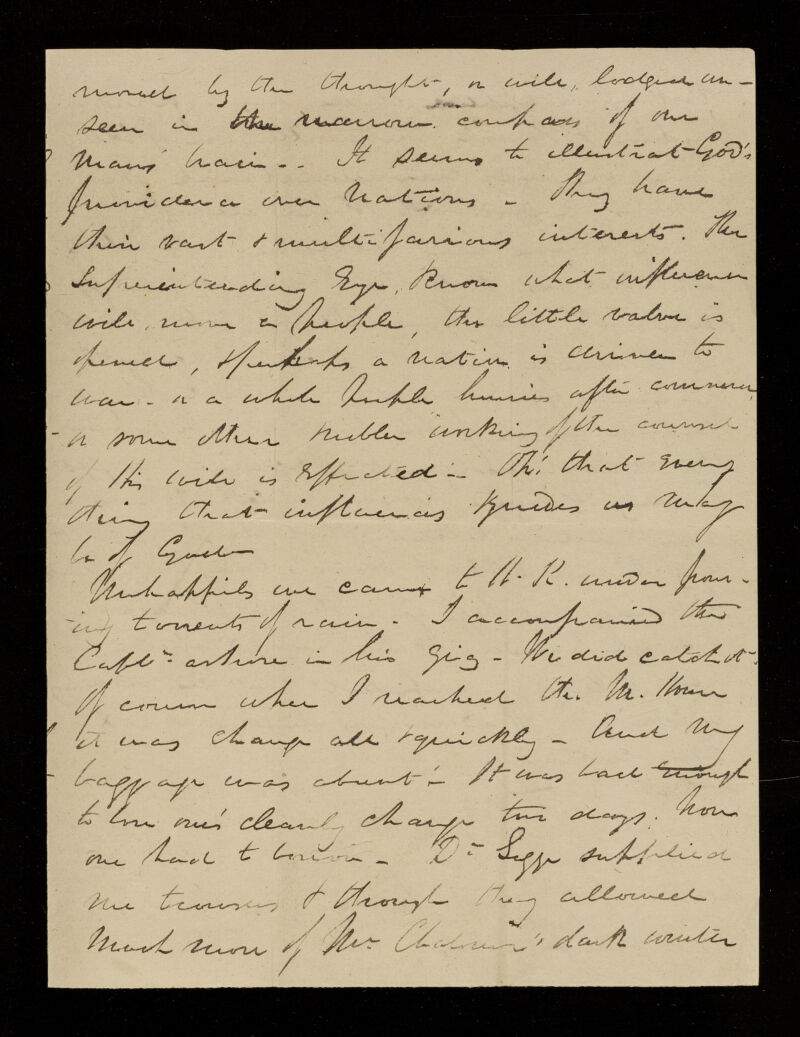 moved by the thought, or will, lodged un-
seen in the narrow compass of one
man's brain -. It seems to illustrate God's
providence over Nations - They have
their vast & multifarious interests. The
Superintending Eye, knows what influence
will move a people, the little valve is
opened, & perhaps a nation is driven to
war - or a whole people hurries after commerce,
or some other nobler working of the counsel
of His will is effected - Oh! that every
thing that influences & guides us may
be of God -
Unhappily we came to H. K. under pour-
ing torrents of rain - I accompanied the
Captn. ashore in his gig - We did catch it -
Of course when I reached the M. House
it was change all & quickly - And my
baggage was absent - It was bad enough
to lose one's cleanly change two days. Now
one had to borrow - Dr. Legge supplied
me trousers & though they allowed
much more of Mr. dark counter